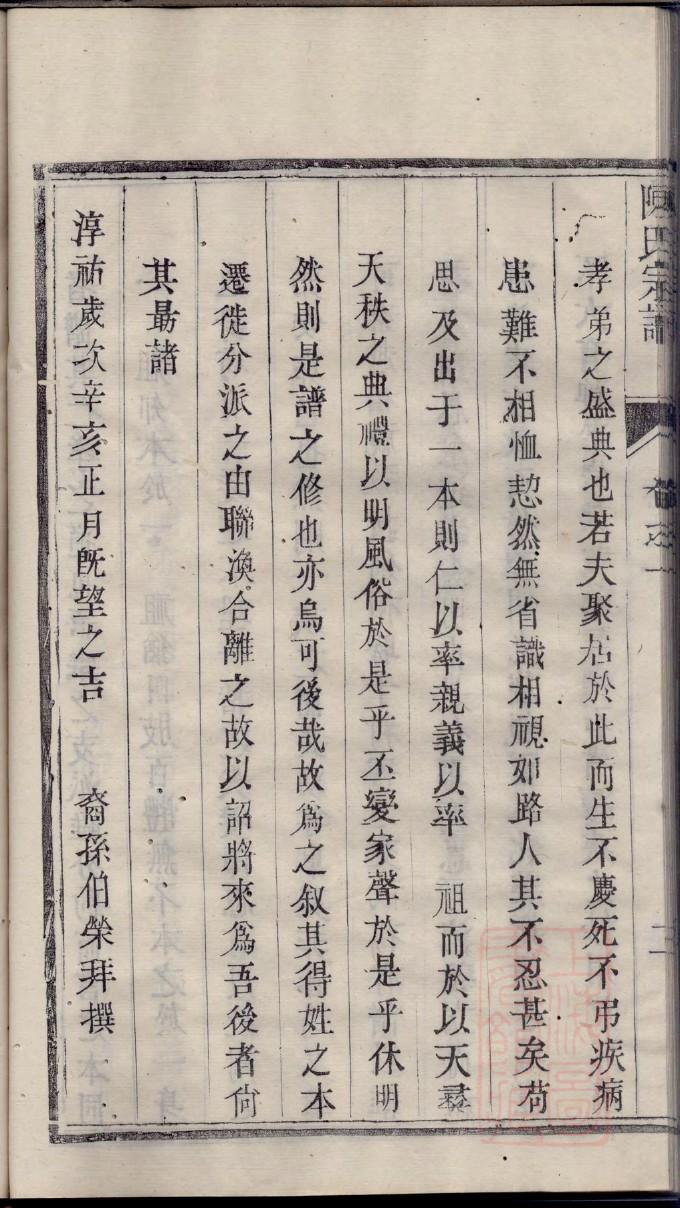 陳氏宗譜 卷之一 二
孝弟之盛典也若夫聚居於此而生不慶死不弔疾病
患難不相恤恝然無省識相視如路人其不忍甚矣苟
思及出于一本則仁以率親義以率 祖而於以天尋
天秩之典禮以明風俗於是乎丕變家聲於是乎休明
然則是譜之修也亦烏可後哉故爲之叙其得姓之本
遷徙分派之由聯渙合離之故以詔將來爲吾後者尙
其勗諸
淳祐歲次辛亥正月旣望之吉 裔孫伯榮拜撰